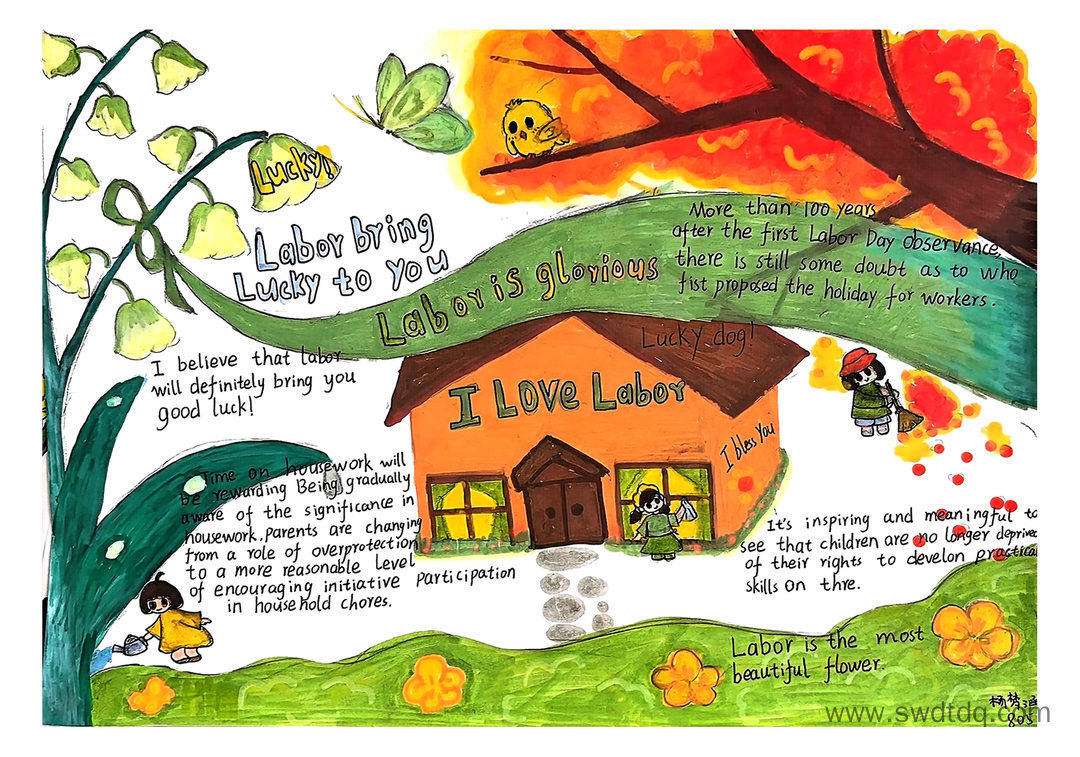 Lucky!
Labor bring
Lucky to you
Labor is glorious
More than 100 years
after the first Labor Day observance,
there is still some doubt as to who
fist proposed the holiday for workers.
Lucky dog!
I believe that labor
will definitely bring you
good luck!
I LOVE Labor
I bless You
Time on housework will
be rewarding Being gradually
aware of the significance in
housework, parents are changing
from a role of overprotection
to a more reasonable level
of encouraging initiative Participation
in household chores.
It's inspiring and meaningful to
see that children are no longer deprived
of their rights to develop practical
skills on thre.
Labor is the most
beautiful flower.
杨梦涵
805
www.swdtdq.com